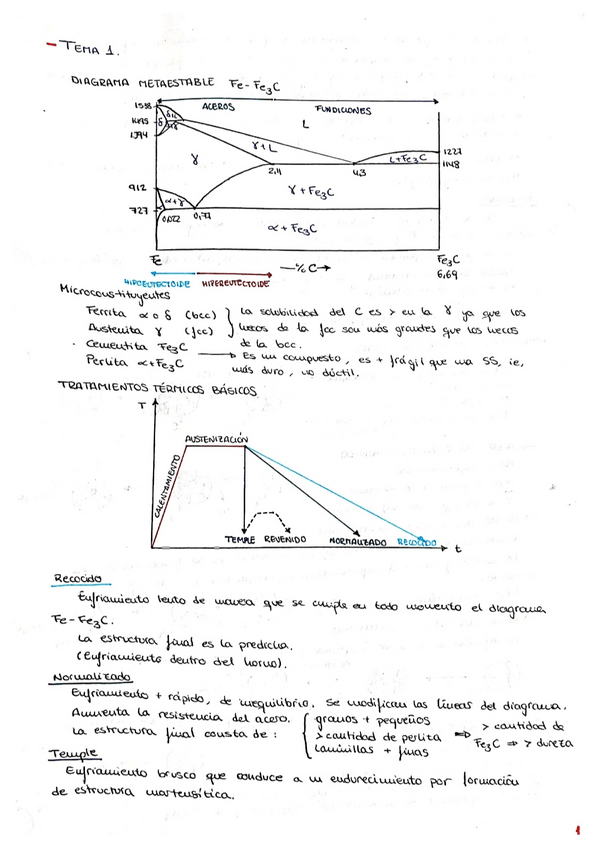 - TEMA 1.
DIAGRAMA METAESTABLE Fe-Fe3C
ACEROS FUNDICIONES
1538
1495 δ δ+L L
1394
γ γ+L L+Fe3C 1227
2,11 4,3 1148
912
α+γ γ+Fe3C
727
0,022 0,77
α+Fe3C
Fe —%C→ Fe3C
6,69
HIPOEUTECTOIDE HIPEREUTECTOIDE
Microconstituyentes
Ferrita α o δ (bcc) } La solubilidad del C es > en la γ ya que los
Austenita γ (fcc) } huecos de la fcc son más grandes que los huecos
de la bcc.
· Cementita Fe3C
Perlita α+Fe3C → Es un compuesto, es + frágil que una SS, ie,
más duro, no dúctil.
TRATAMIENTOS TÉRMICOS BÁSICOS
T
AUSTENIZACIÓN
CALENTAMIENTO
TEMPLE REVENIDO NORMALIZADO RECOCIDO t
Recocido
Enfriamiento lento de manera que se cumple en todo momento el diagrama
Fe-Fe3C.
La estructura final es la predicha.
(Enfriamiento dentro del horno).
Normalizado
Enfriamiento + rápido, de inequilibrio. Se modifican las líneas del diagrama.
Aumenta la resistencia del acero.
La estructura final consta de: { granos + pequeños
> cantidad de perlita
laminillas + finas ⇒ > cantidad de
Fe3C ⇒ > dureza
Temple
Enfriamiento brusco que conduce a un endurecimiento por formación
de estructura martensítica.
1